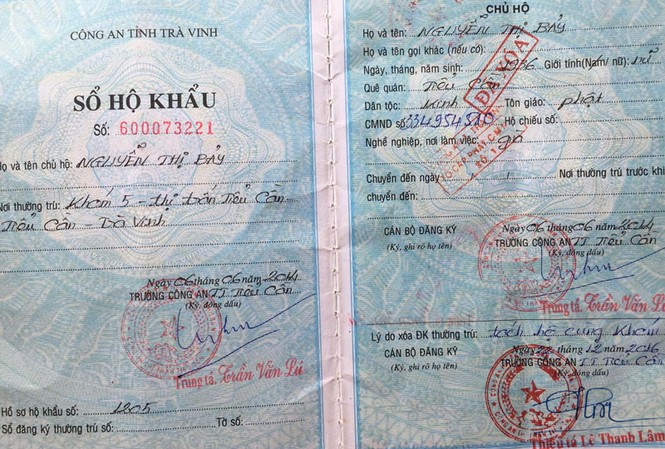 CÔNG AN TỈNH TRÀ VINH
SỔ HỘ KHẨU
Số: 600073221
Họ và tên chủ hộ: NGUYỄN THỊ BẢY
Nơi thường trú: Khóm 5 - thị trấn Tiểu Cần
Tiểu Cần - Trà Vinh
Ngày 06 tháng 06 năm 2014
TRƯỞNG CÔNG AN TT Tiểu Cần
(Ký, đóng dấu)
Trung tá. Trần Văn Lú
Hồ sơ hộ khẩu số: 1205
Sổ đăng ký thường trú số: Tờ số:
CHỦ HỘ
Họ và tên: NGUYỄN THỊ BẢY
Họ và tên gọi khác (nếu có):
Ngày, tháng, năm sinh: 1936 Giới tính(Nam/ nữ): nữ
Quê quán: Tiểu Cần
Dân tộc: Kinh Tôn giáo: phật
CMND số: 334954510 Hộ chiếu số:
Nghề nghiệp, nơi làm việc:
ĐÃ XÓA
Chuyển đến ngày Nơi thường trú trước khi
chuyển đến:
Ngày 06 tháng 06 năm 2014
CÁN BỘ ĐĂNG KÝ TRƯỞNG CÔNG AN TT Tiểu Cần
(Ký, ghi rõ họ tên) (Ký, đóng dấu)
Trung tá. Trần Văn Lú
Lý do xóa ĐK thường trú: tách hộ cùng Khóm
Ngày 22 tháng 12 năm 2016
CÁN BỘ ĐĂNG KÝ TRƯỞNG CÔNG AN TT Tiểu Cần
(Ký, ghi rõ họ tên) (Ký, đóng dấu)
Thiếu tá Lê Thanh Lâm